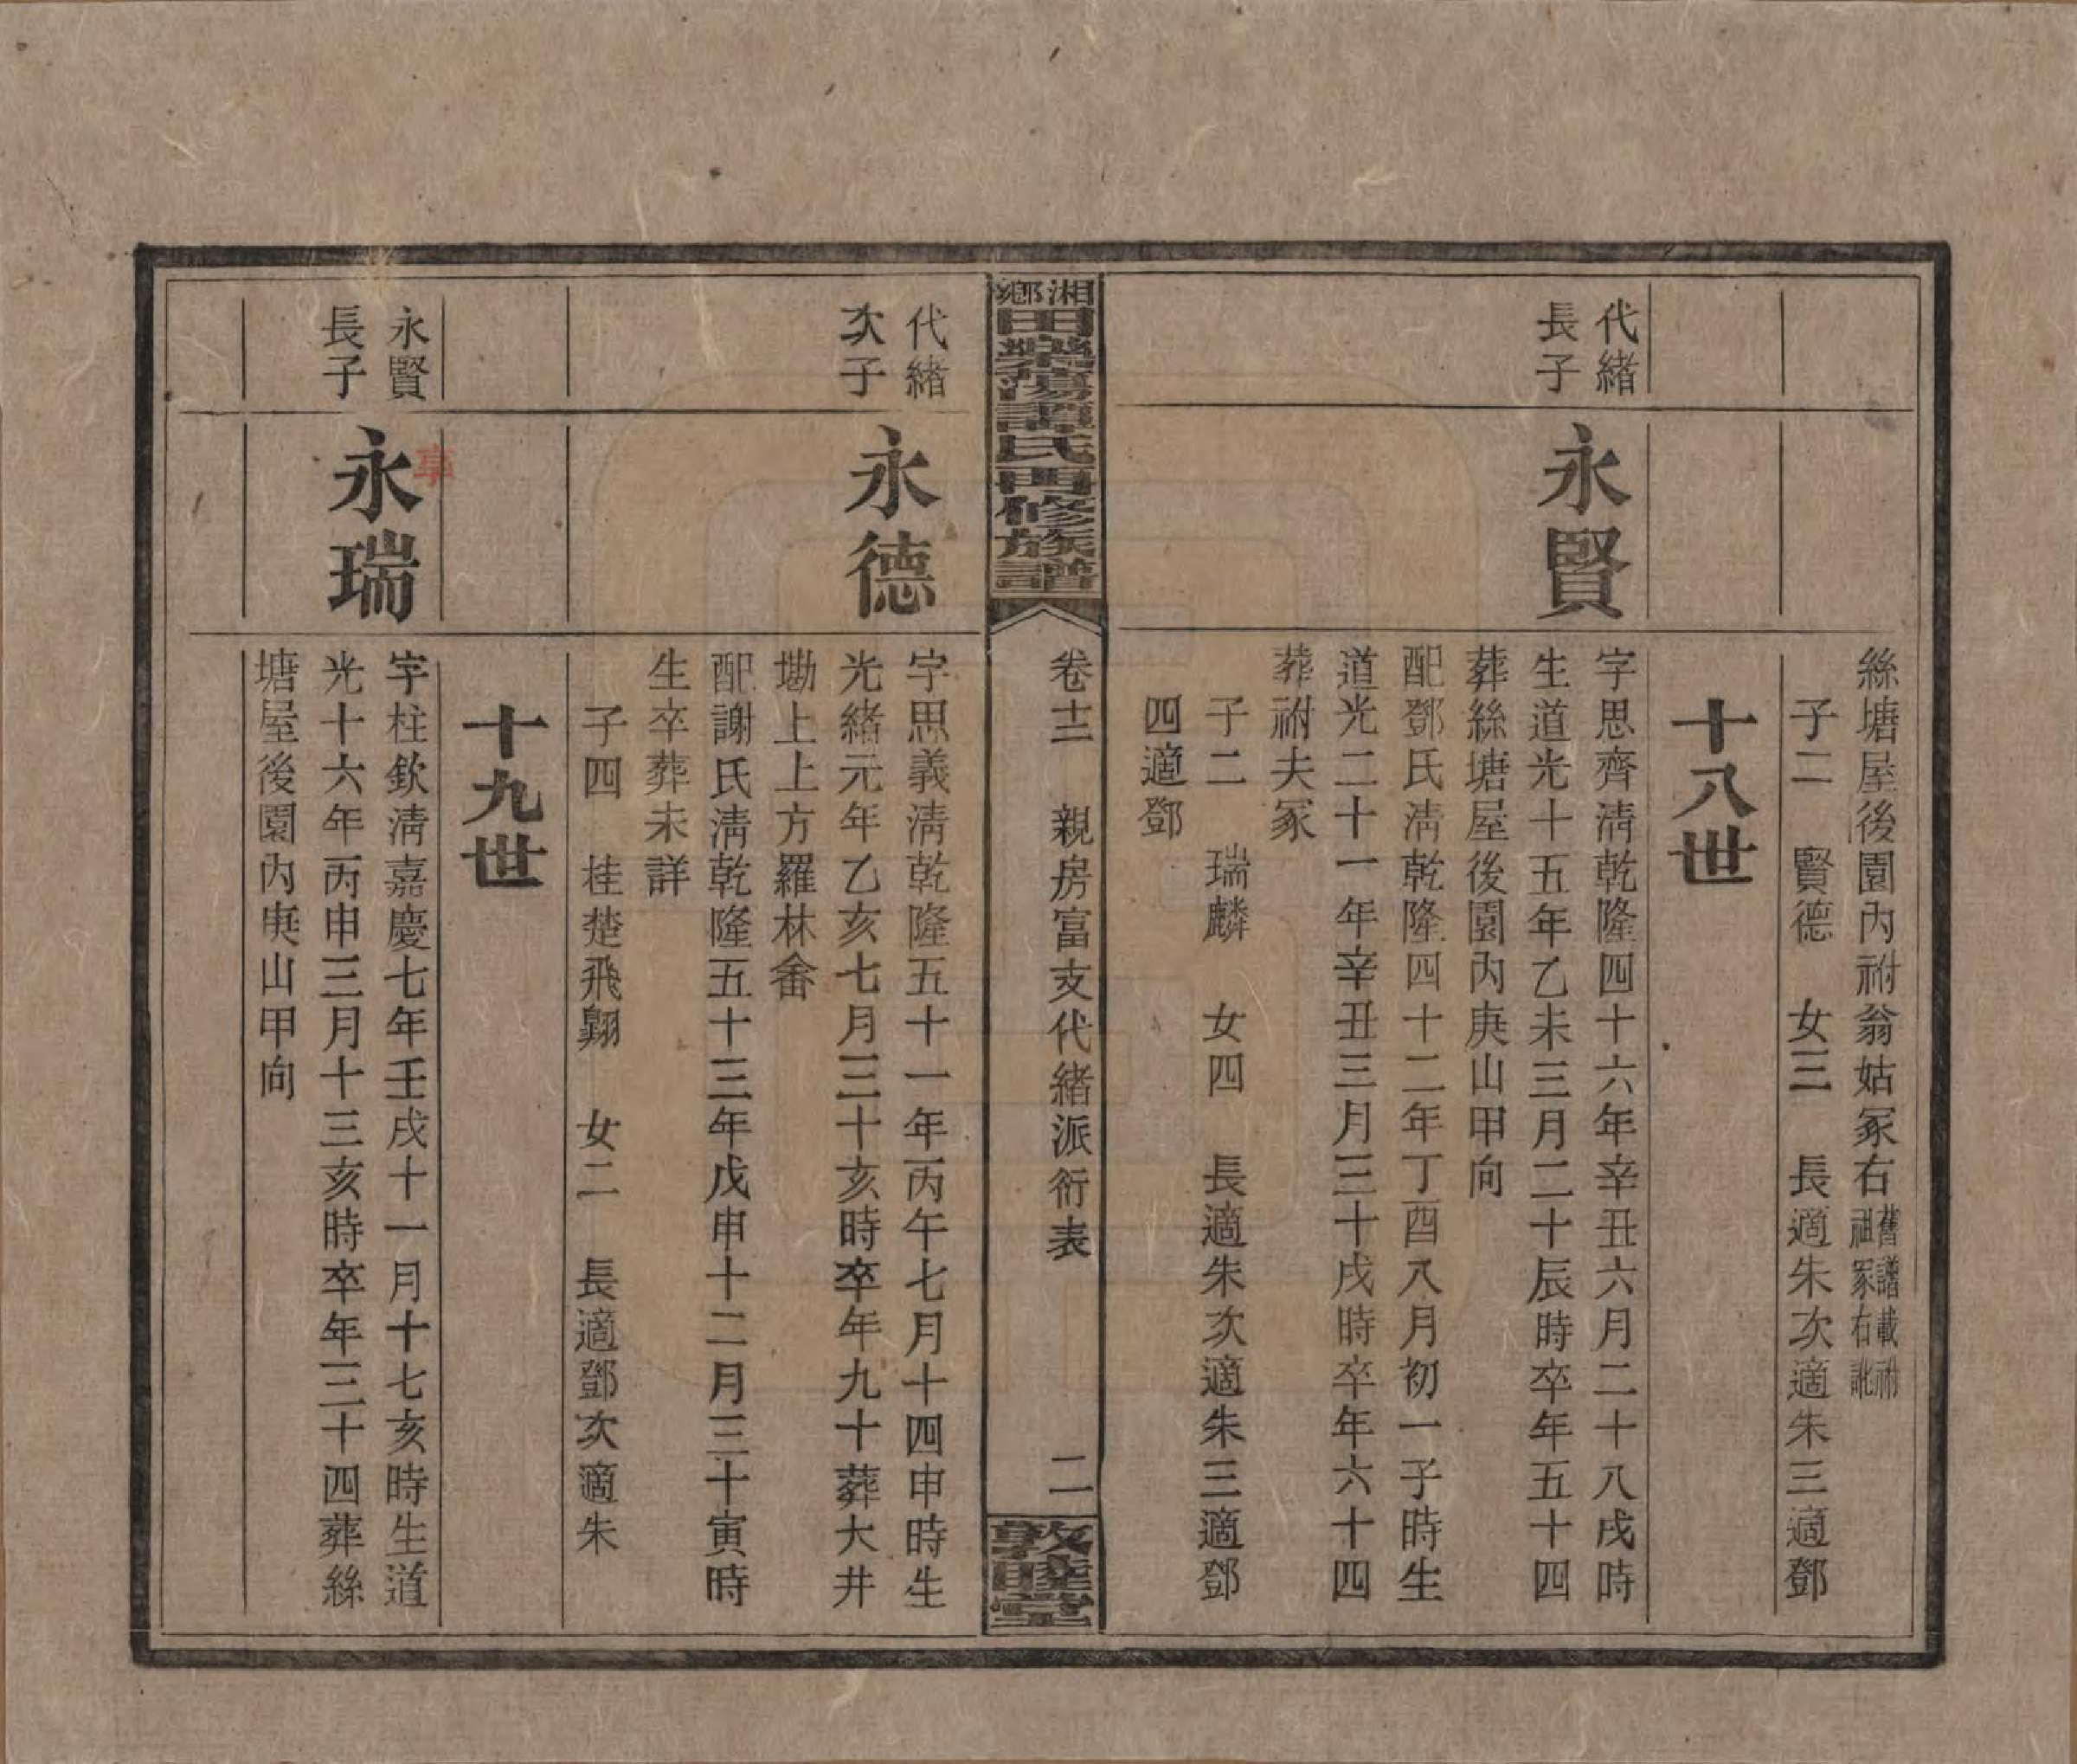 絲塘屋後園內祔翁姑冢右舊譜載祔
祖冢右訛
子二 賢德 女三 長適朱次適朱三適鄧
十八世
代緒
長子
永賢
字思齊清乾隆四十六年辛丑六月二十八戌時
生道光十五年乙未三月二十辰時卒年五十四
葬絲塘屋後園內庚山甲向
配鄧氏清乾隆四十二年丁酉八月初一子時生
道光二十一年辛丑三月三十戌時卒年六十四
葬祔夫冢
子二 瑞麟 女四 長適朱次適朱三適鄧
四適鄧
湘鄉田心譚氏四修族譜
卷十二 親房富支代緒派衍表 二
敦睦堂
代緒
次子
永德
字思義清乾隆五十一年丙午七月十四申時生
光緒元年乙亥七月三十亥時卒年九十葬大井
墈上上方羅林畬
配謝氏清乾隆五十三年戊申十二月三十寅時
生卒葬未詳
子四 桂楚飛翱 女二 長適鄧次適朱
十九世
永賢
長子
永瑞
字柱欽清嘉慶七年壬戌十一月十七亥時生道
光十六年丙申三月十三亥時卒年三十四葬絲
塘屋後園內庚山甲向